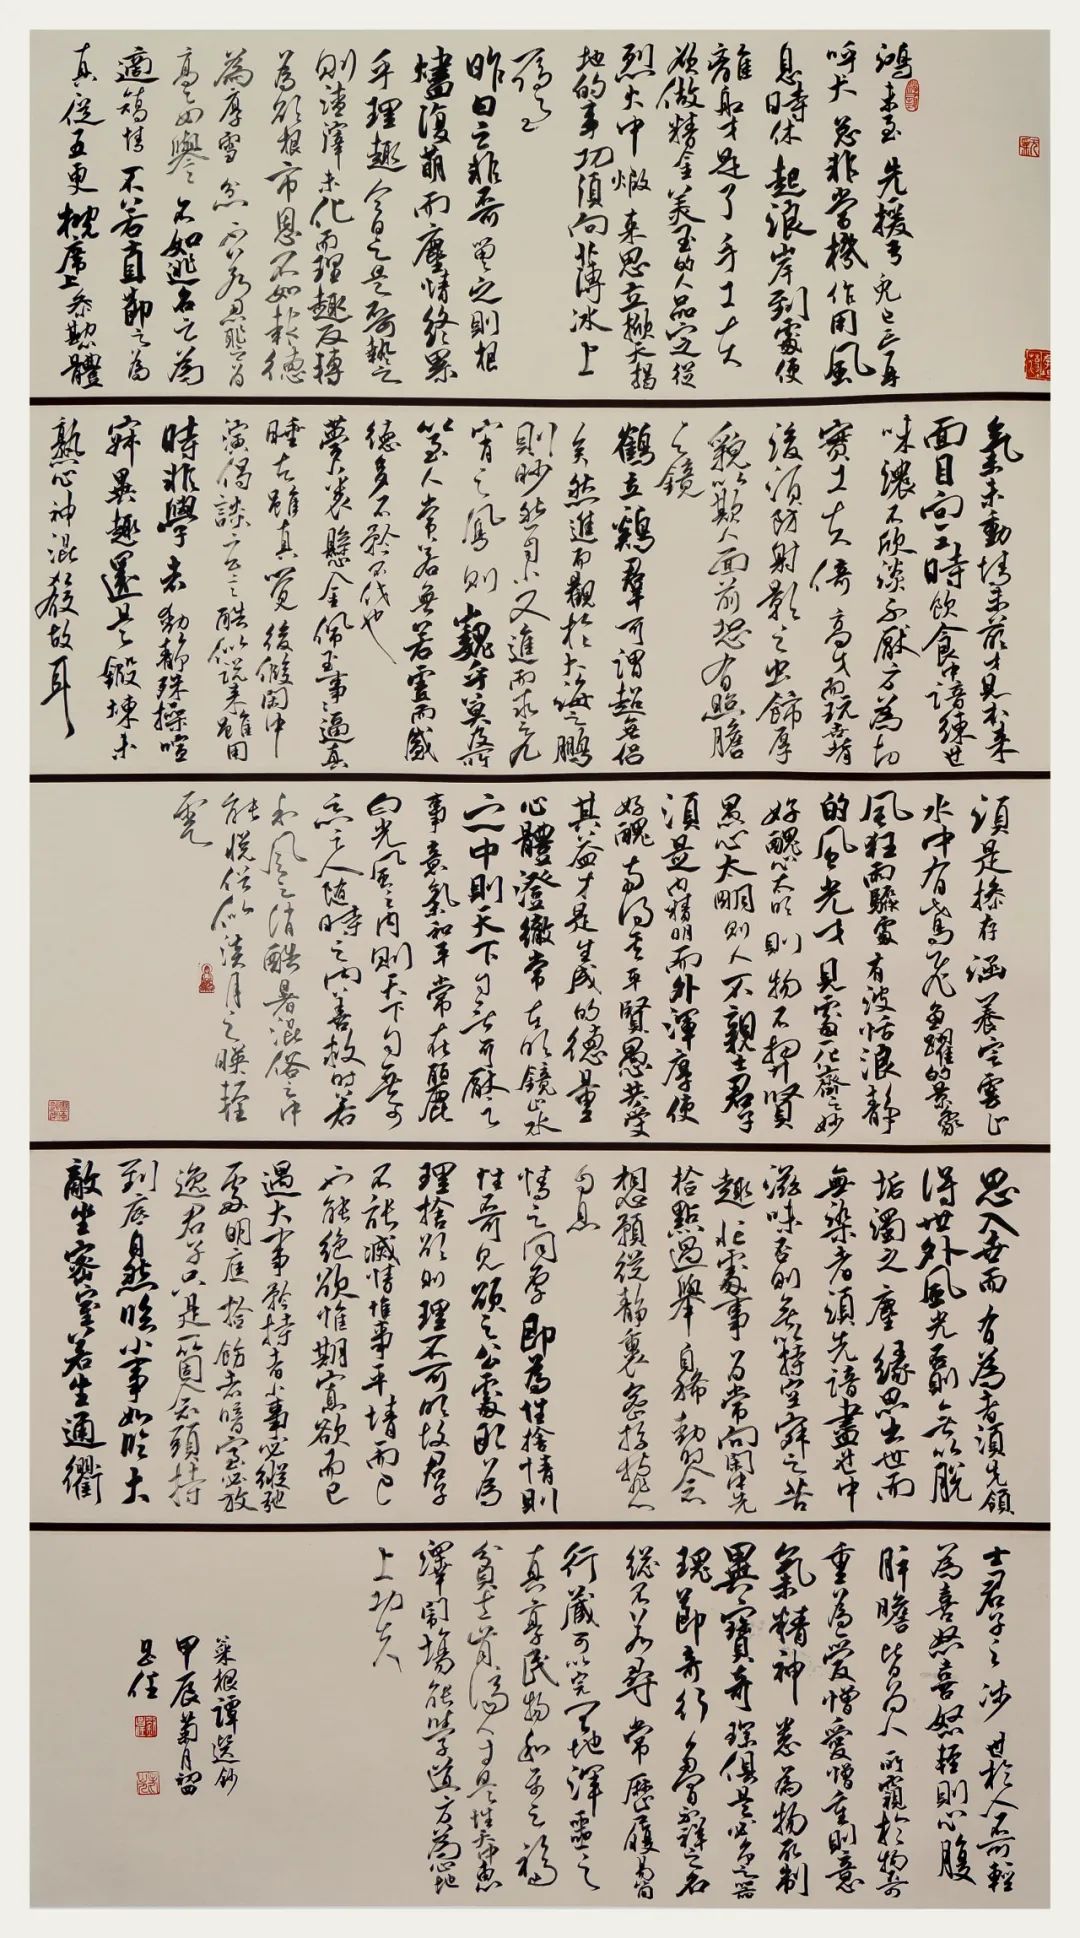 鴻未至先援弓兔已亡再
呼犬总非當機作用風
息時休起浪岸到處便
離船才是了手工夫
欲做精金美玉的人品定從
烈火中煅来思立掀天揭
地的事功須向薄冰上
履過
昨日之非不可留留之則根
燼復萌而塵情終累
乎理趣今日之是不可執執之
則渣滓未化而理趣反轉
為欲根市恩不如報德
為厚雪忿不若忍耻為
高要譽不如逃名之為
適矯情不若直節之為
真從五更枕席上参勘心體
氣未動情未萌才見本来
面目向三時飲食中諳練世
味濃不欣淡不厭方為切
實工夫倚高才而玩世背
後須防射影之虫飾厚
貌以欺人面前恐有照膽
之鏡
鶴立鷄羣可謂超無侣
矣然進而觀於大海之鵬
則眇然自小又進而求之九
霄之鳳則巍乎莫及所
以至人常若無若虛而盛
德多不矜不伐也
夢裏懸金佩玉事事逼真
睡去雖真覺後假閑中
演偈談玄言言酷似説来雖
時非學者動靜殊操喧
寂異趣還是鍛煉未
熟心神混殽故耳
須是操存涵養定雲止
水中有鳶飛魚躍的景象
風狂雨驟處有波恬浪静
的風光才見處一化齊之妙
好醜心太明則物不契賢
愚心太明則人不親士君子
須是内精明而外渾厚使
好醜两得其平賢愚共受
其益才是生成的德量
心體澄徹常在明鏡止水
之中則天下自無可厭之
事意氣和平常在麗
日光風之内則天下自無可
惡之人隨時之内善救时若
和風之消酷暑混俗之中
能悦俗似淡月之暎輕
雲
思入世而有為者須先領
得世外風光否則無以脱
垢濁之塵緣思出世而
無染者須先諳盡世中
滋味否則無以持空寂之苦
趣忙處事為常向閑中先
拾點過舉自稀動時念
想預從静裏密操持非心
自息
情之同處即為性捨情則
性不可見欲之公處即為
理捨欲則理不可明故君子
不能滅情惟事平情而已
不能絶欲惟期寡欲而已
遇大事矜持者小事必縱弛
處明庭撿飭者暗室必放
逸君子只是一箇念頭持
到底自然臨小事如臨大
敵坐密室若坐通衢
士君子之涉世於人不可輕
為喜怒喜怒輕則心腹
肝膽皆為人所窺於物不可
重為愛憎愛憎重則意
氣精神悉為物所制
異寶奇琛俱是必争之器
瑰節奇行多冒不祥之名
總不若尋常歷履易簡
行藏可以完天地渾噩之
真享民物和平之福
貧士肯濟人才是性天中惠
澤鬧場能學道方為心地
上功夫
菜根譚選鈔
甲辰菊月